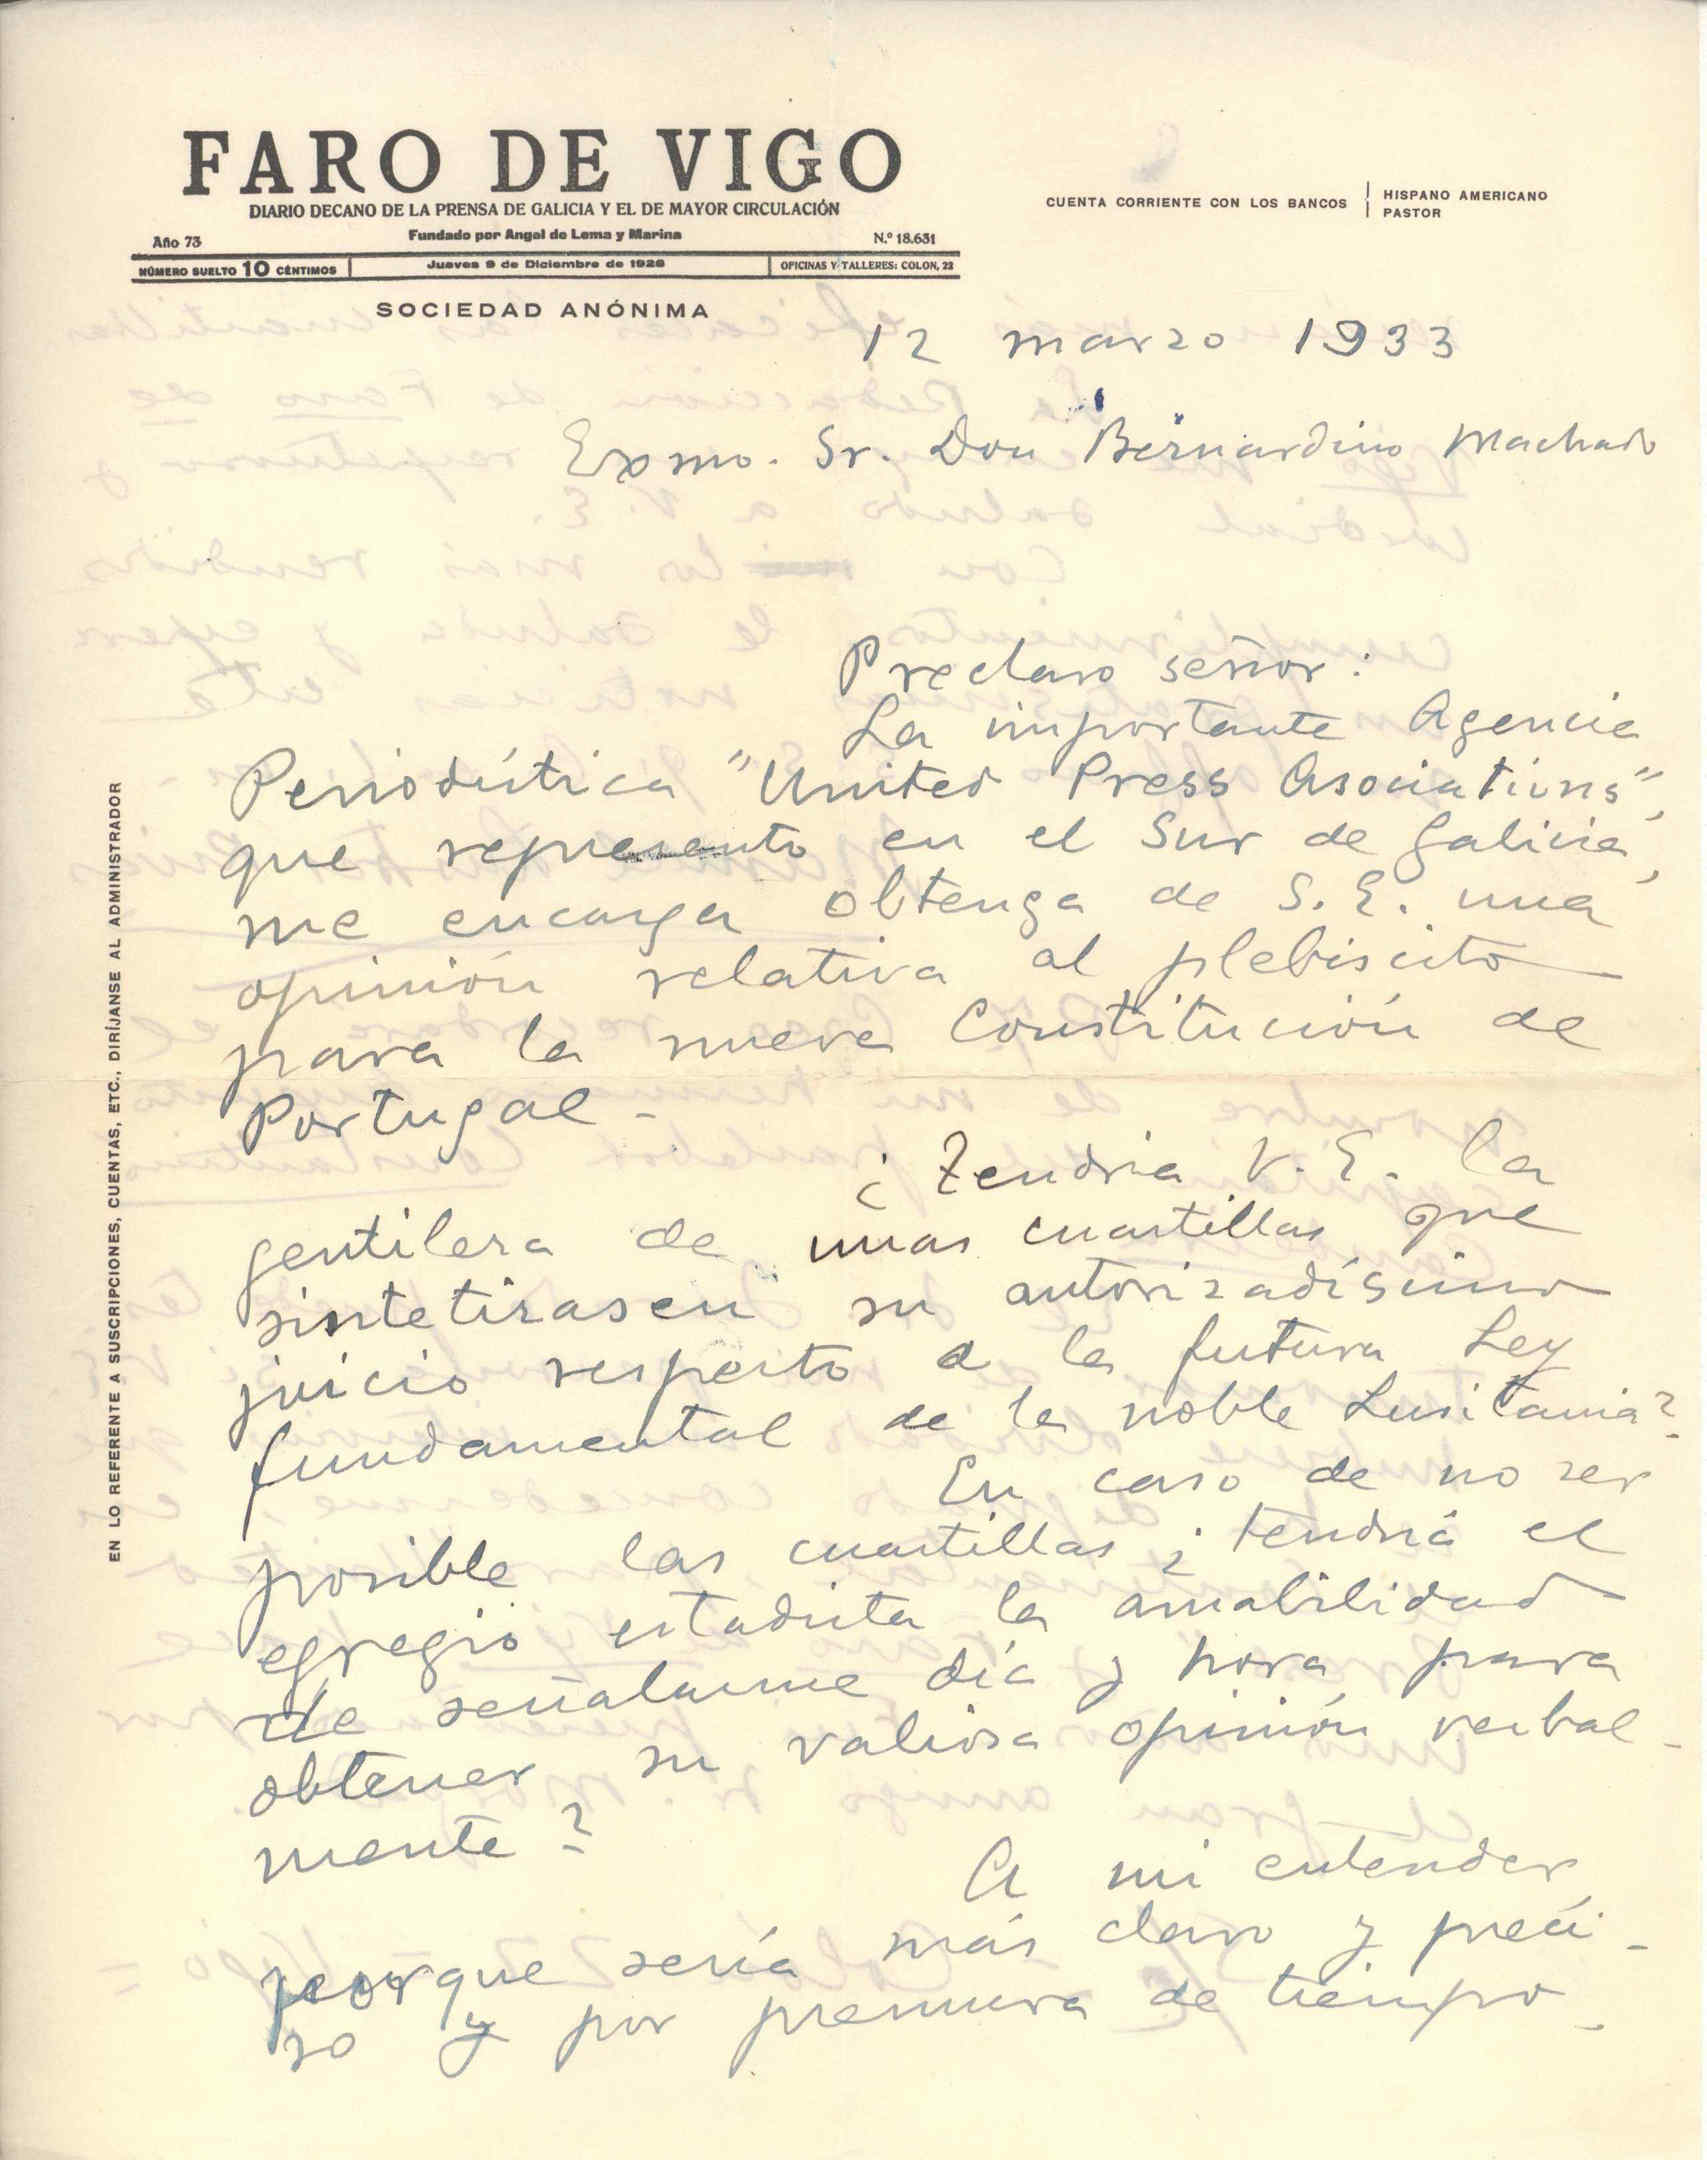 FARO DE VIGO
DIARIO DECANO DE LA PRENSA DE GALICIA Y EL DE MAYOR CIRCULACIÓN
Fundado por Angel de Lema y Marina
Año 73
N.º 18.631
NÚMERO SUELTO 10 CÉNTIMOS
Jueves 9 de Diciembre de 1926
OFICINAS Y TALLERES: COLON, 22
SOCIEDAD ANÓNIMA
CUENTA CORRIENTE CON LOS BANCOS
HISPANO AMERICANO
PASTOR
EN LO REFERENTE A SUSCRIPCIONES, CUENTAS, ETC., DIRÍJANSE AL ADMINISTRADOR
12 marzo 1933
Exmo. Sr. Don Bernardino Machado
Preclaro señor:
La importante Agencia
Periodística "United Press Asociations",
que represento en el Sur de Galicia,
me encarga obtenga de S. E. una
opinión relativa al plebiscito
para la nueva Constitución de
Portugal -
¿Tendria V. E. la
gentileza de unas cuartillas que
sintetizasen su autorizadísimo
juicio respecto a la futura Ley
fundamental de la noble Lusitania?
En caso de no ser
posible las cuartillas ¿tendrá el
egregio estadista la amabilidad
de señalarme día y hora para
obtener su valiosa opinión verbal-
mente?
A mi entender
porque sería más claro y preci-
so y por premura de tiempo -